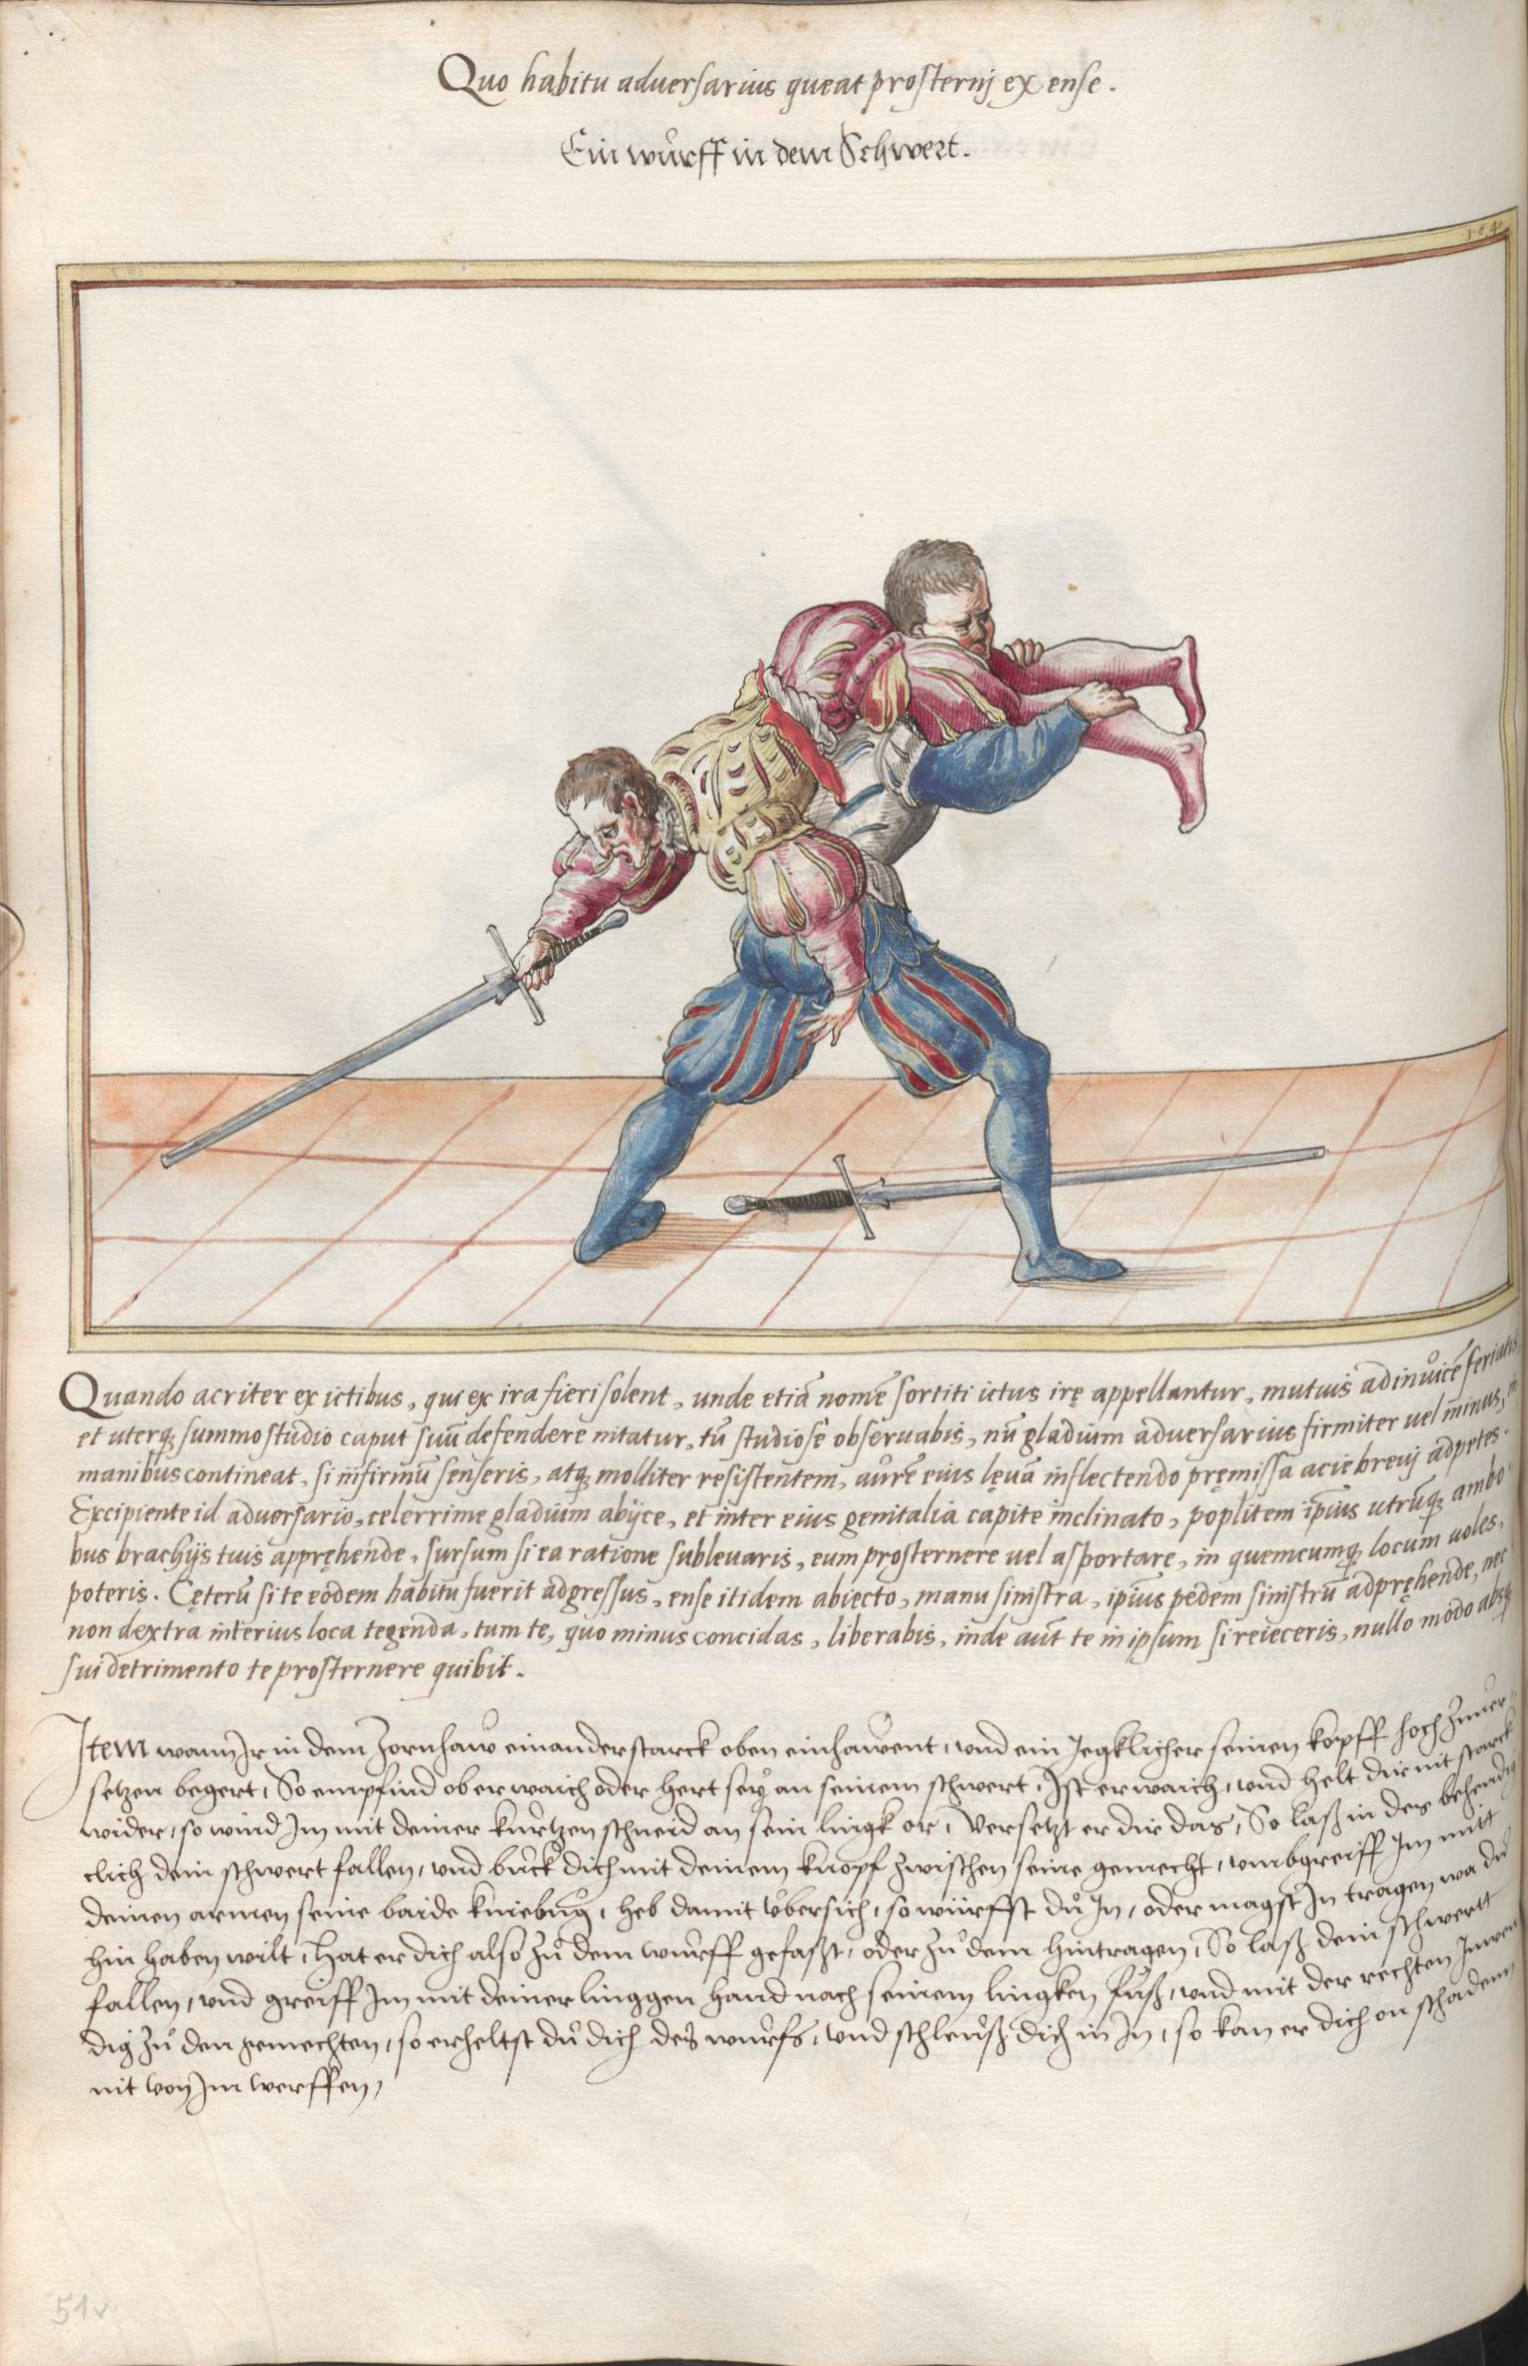 Quo habitu aduersarius queat prosternj ex ense.
Ein wůrff in dem Schwert.
Quando acriter ex ictibus, qui ex ira fieri solent, unde etiā nomē sortiti ictus irę appellantur, mutuis adinuicē feriatis,
et uterq; summo studio caput suū defendere nitatur, tū studiose obseruabis, nū gladium aduersarius firmiter uel minus, in
manibus contineat, si infirmū senseris, atq; molliter resistentem, aurē eius lęuā inflectendo pręmissa acie breuj adpetes.
Excipiente id aduersario, celerrime gladium abijce, et inter eius genitalia capite inclinato, poplitem ipius utrūq; ambo
bus brachijs tuis appręhende, sursum si ea ratione subleuaris, eum prosternere uel asportare, in quemcumq; locum uoles,
poteris. Cęterū si te eodem habitu fuerit adgressus, ense itidem abiecto, manu sinistra, ipius pedem sinistrū adpręhende, nec
non dextra interius loca tegenda, tum te, quo minus concidas, liberabis, inde aūt te in ipsum si reieceris, nullo modo absq;
sui detrimento te prosternere quibit.
Item wann Ir in dem Zornhaw einander starck oben einhawent, vnd ein Jegklicher seinen kopff hoch zuuer,
setzen begert, So empfind ob er waich oder hert sey an seinem schwert, Ist er waich, vnd helt dir nit starck
wider, so wind Im mit deiner kurtzen schneid an sein lingk or, Versetzt er dir das, So laß in des behendig
clich dein schwert fallen, vnd buck dich mit deinem knopf zwischen seine gemecht, vmbgreiff Im mitt
deinen armen seine baide kniebug, heb damit vbersich, so würffst du In, oder magst In tragen wa du
hin haben wilt, Hat er dich also zu dem wurff gefaßt, oder zu dem hintragen, So laß dein schwertt
fallen, vnd greiff Im mit deiner linggen hand nach seinem lingken fuß, vnd mit der rechten Inwen
dig zu den gemechten, so erheltst du dich des wurfs, vnd schleuß dich in In, so kan er dich on schadem
nit von Im werffen,
51v